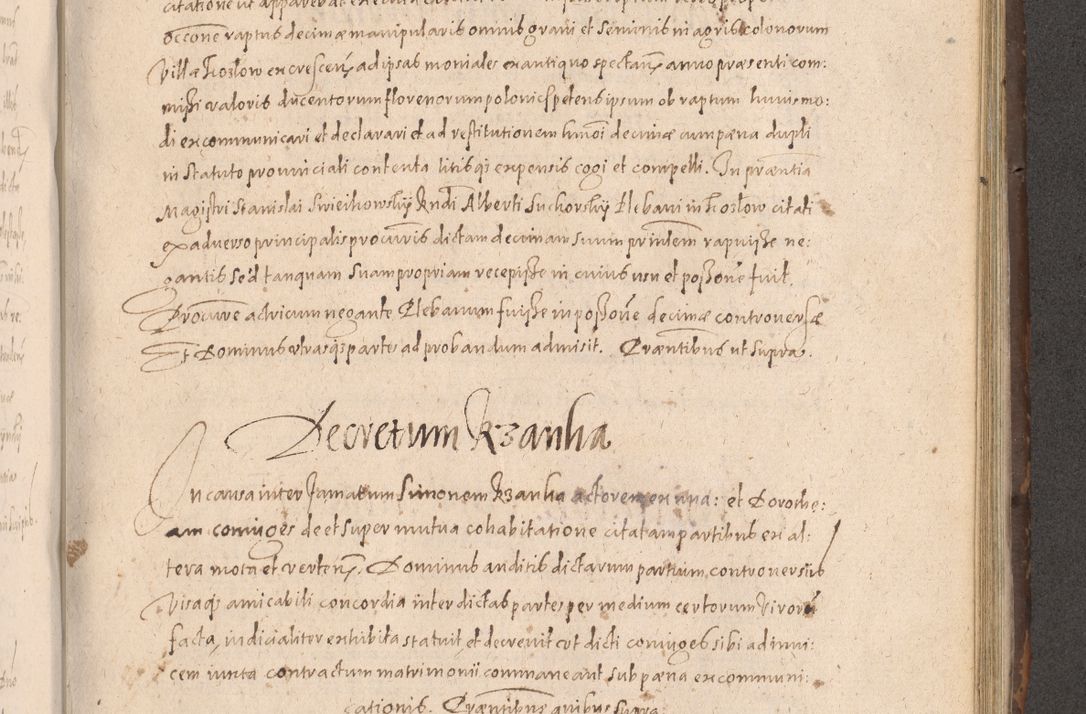 occone raptus decimæ manipularis omnis grani et seminis in agris colonorum
Villæ Kozlow excrescen: ad ipsas moniales ex antiquo spectan: anno præsenti com:
missi valoris ducentorum florenorum polonic: petens ipsum ob raptum huiusmo:
di excommunicari et declarari et ad restitutionem hmoi decimæ cum pæna dupli
in Statuto provinciali contenta litisq; expensis cogi et compelli. In præntia
Magistri Stanislai Swieikowsky Kndi Alberti Suchorsky Plebani in Kozlow citati
ex adverso principalis procuris dictam decimam suum prindem rapuisse ne:
gantis sed tanquam suam propriam recepisse in cuius usu et possone fuit.
Procure actricum negante Plebanum fuisse in possone decimæ controversæ
Et Dominus utrasq; partes ad probandum admisit. Præntibus ut supra.
Decretum Kzanka
In causa inter famatum Simonem Kzanka actorem ex una: et Dorothe:
am coniuges de et super mutua cohabitatione citatam partibus ex al:
tera mota et verten: Dominus auditis dictarum partium controversiis
Visaq; amicabili concordia inter dictas partes per medium certorum Viroru
facta, iudicialiter exhibita statuit et decrevit ut dicti coniuges sibi ad invi:
cem iuxta contractum matrimonii commaneant sub pæna excommuni:
cationis. Præntibus quibus supra